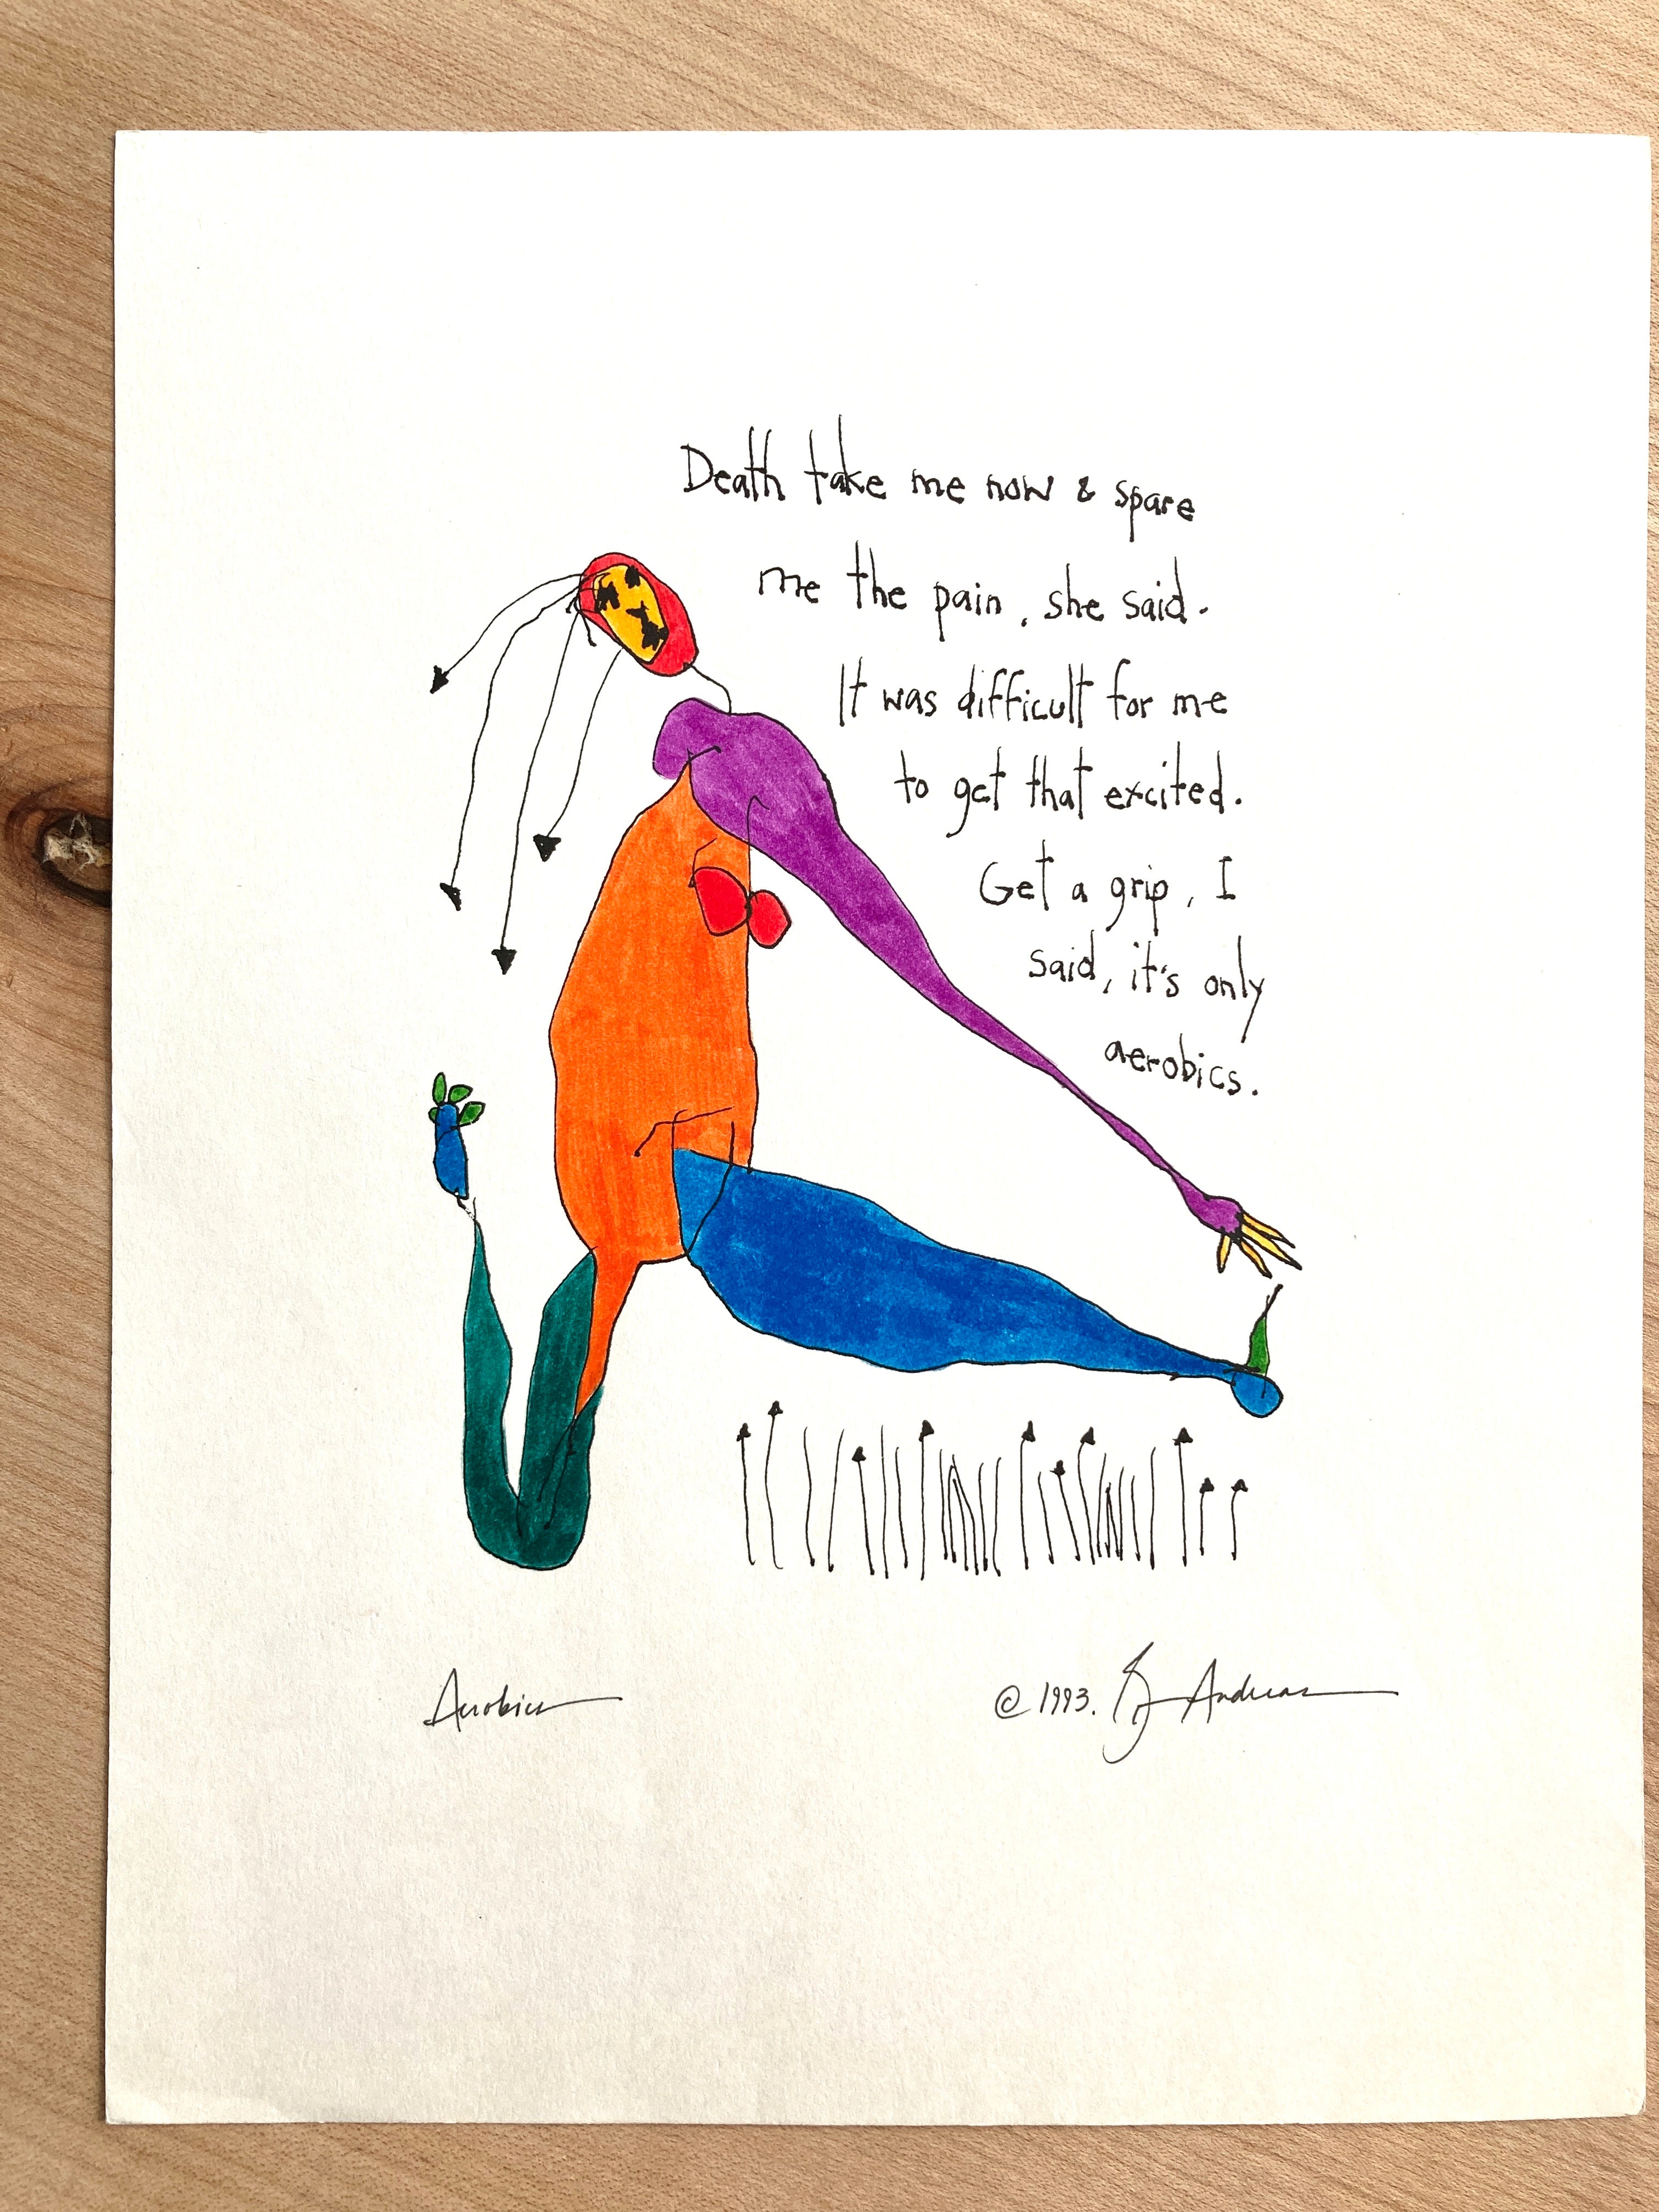 Death take me now & spare
me the pain, she said.
It was difficult for me
to get that excited.
Get a grip, I
said, it's only
aerobics.
Aerobics
© 1993. Andreas